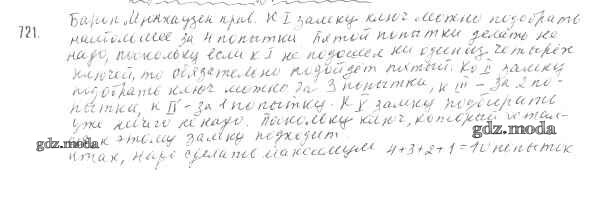 721. Барон Мюнхаузен прав. К I замку ключ можно подобрать
наибольшее за 4 попытки пятой попытки делать не
надо, поскольку если к I не подошел ни один из четырёх
ключей, то обязательно подойдет пятый. Ко II замку
подобрать ключ можно за 3 попытки, к III – за 2 по-
пытки, к IV – за 1 попытку. К V замку подбирать
уже ничего не надо. Поскольку ключ, который остал-
ся к этому замку подходит
Итак, надо сделать максимум 4+3+2+1=10 попыток
gdz.moda
gdz.moda